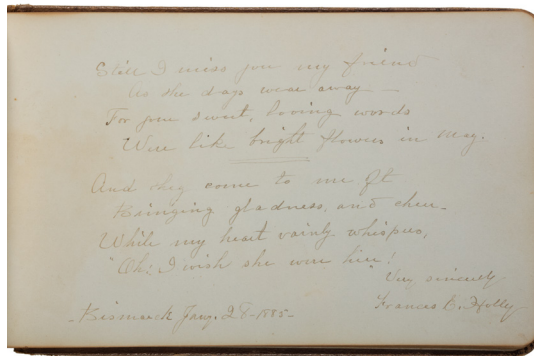 Still I miss you my friend
As the days wear away —
For your sweet, loving words
Were like bright flowers in May.
And they come to me oft
Bringing gladness, and cheer —
While my heart vainly whispers,
"Oh! I wish she were here!"
Very sincerely
Frances C. Holley
Bismarck Jany. 28 - 1885 -